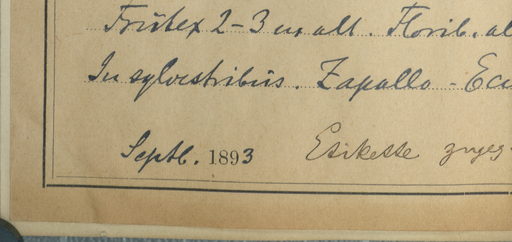 Frutex 2-3 m alt. Florib. al
In sylvestribus. Zapallo - Ecu
Septb. 1893 Etikette zugeg